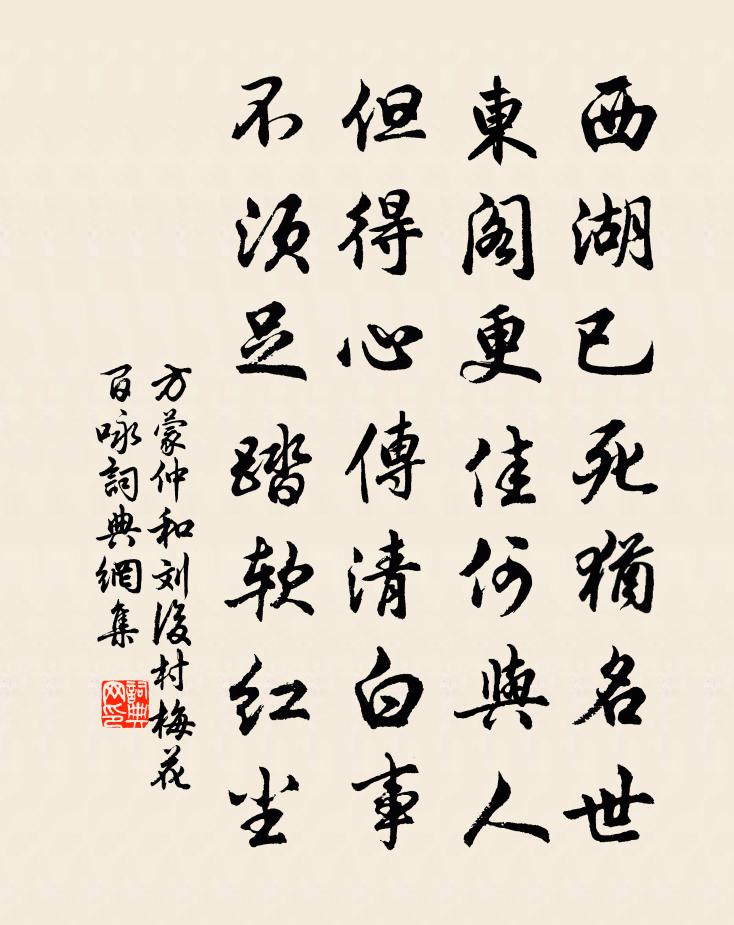 西湖已死猶名世
東閣更佳何與人
但得心傳清白事
不須足踏软紅尘
方蒙仲和刘後村梅花
百咏詞典網集
詞典网印